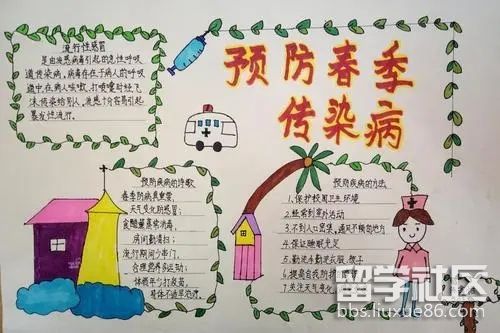 预防春季
传染病
流行性感冒
是由流感病毒引起的急性呼吸
道传染病,病毒存在于病人的呼吸
道中,在病人咳嗽,打喷嚏时经飞
沫传染给别人,流感十分容易引起
暴发性流行。
预防疾病的诗歌
春季防病真重要,
天气变化防感冒;
食醋薰蒸常消毒,
房间勤清扫;
流行期间少串门,
合理营养多运动;
体倦乍力打疫苗,
身体不适早治疗。
预防疾病的方法
1.保护校园卫生环境
2.经常到室外活动
3.不到人口密集、通风不畅的地方
4.保证睡眠充足
5.勤洗手勤洗衣服、被子
6.提高自我防护
7.关注天气变化
留学社区
bbs.liuxue86.com